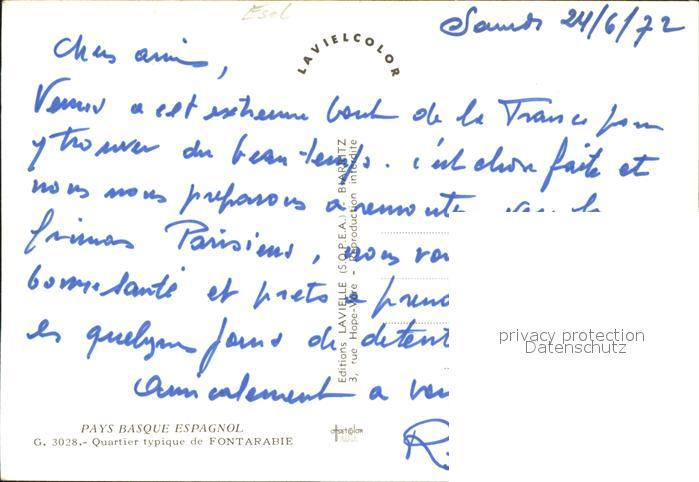 Esel
Samedi 24/6/72
LAVIELCOLOR
Chers amis,
Venir a cet extreme bout de la France pour
y trouver du beau temps. c'est chose faite et
nous nous preparons a remonter vers les
frimas Parisiens, nous
bonne santé et prets a
es quelques jours de
Amicalement a
R.
Editions LAVIELLE (S.O.P.E.A.) - BIARRITZ
3, rue Hope-Vère - Reproduction interdite
PAYS BASQUE ESPAGNOL
G. 3028.- Quartier typique de FONTARABIE
privacy protection
Datenschutz